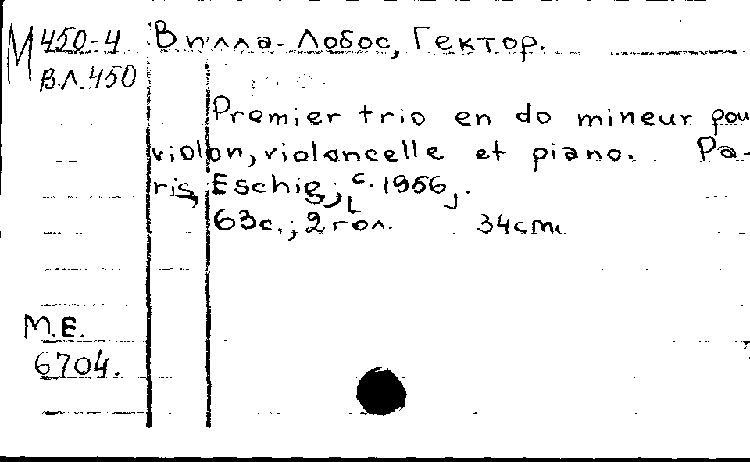 М 450-4 Вилла-Лобос, Гектор.
ВЛ.450
Premier trio en do mineur pou
violon, violoncelle et piano. Pa-
ris, Eschig, [c. 1956].
63с.; 2 гол. 34cm.
М.Е.
6704.